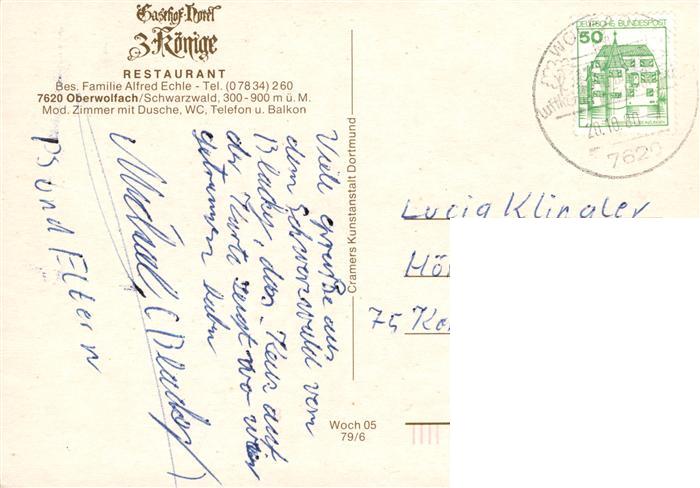 Gasthof-Hotel
3 Könige
RESTAURANT
Bes. Familie Alfred Echle - Tel. (07834) 260
7620 Oberwolfach/Schwarzwald, 300-900 m ü. M.
Mod. Zimmer mit Dusche, WC, Telefon u. Balkon
Viele Grüße aus
dem Schwarzwald vom
Blacky, das Haus auf
der Karte zeigt wo wir
getrunken haben
Michael (Blacky)
und Eltern
Cramers Kunstanstalt Dortmund
Woch 05
79/6
DEUTSCHE BUNDESPOST
50
20.10.80
7620
Lucia Klingler
Hö
75 Ka